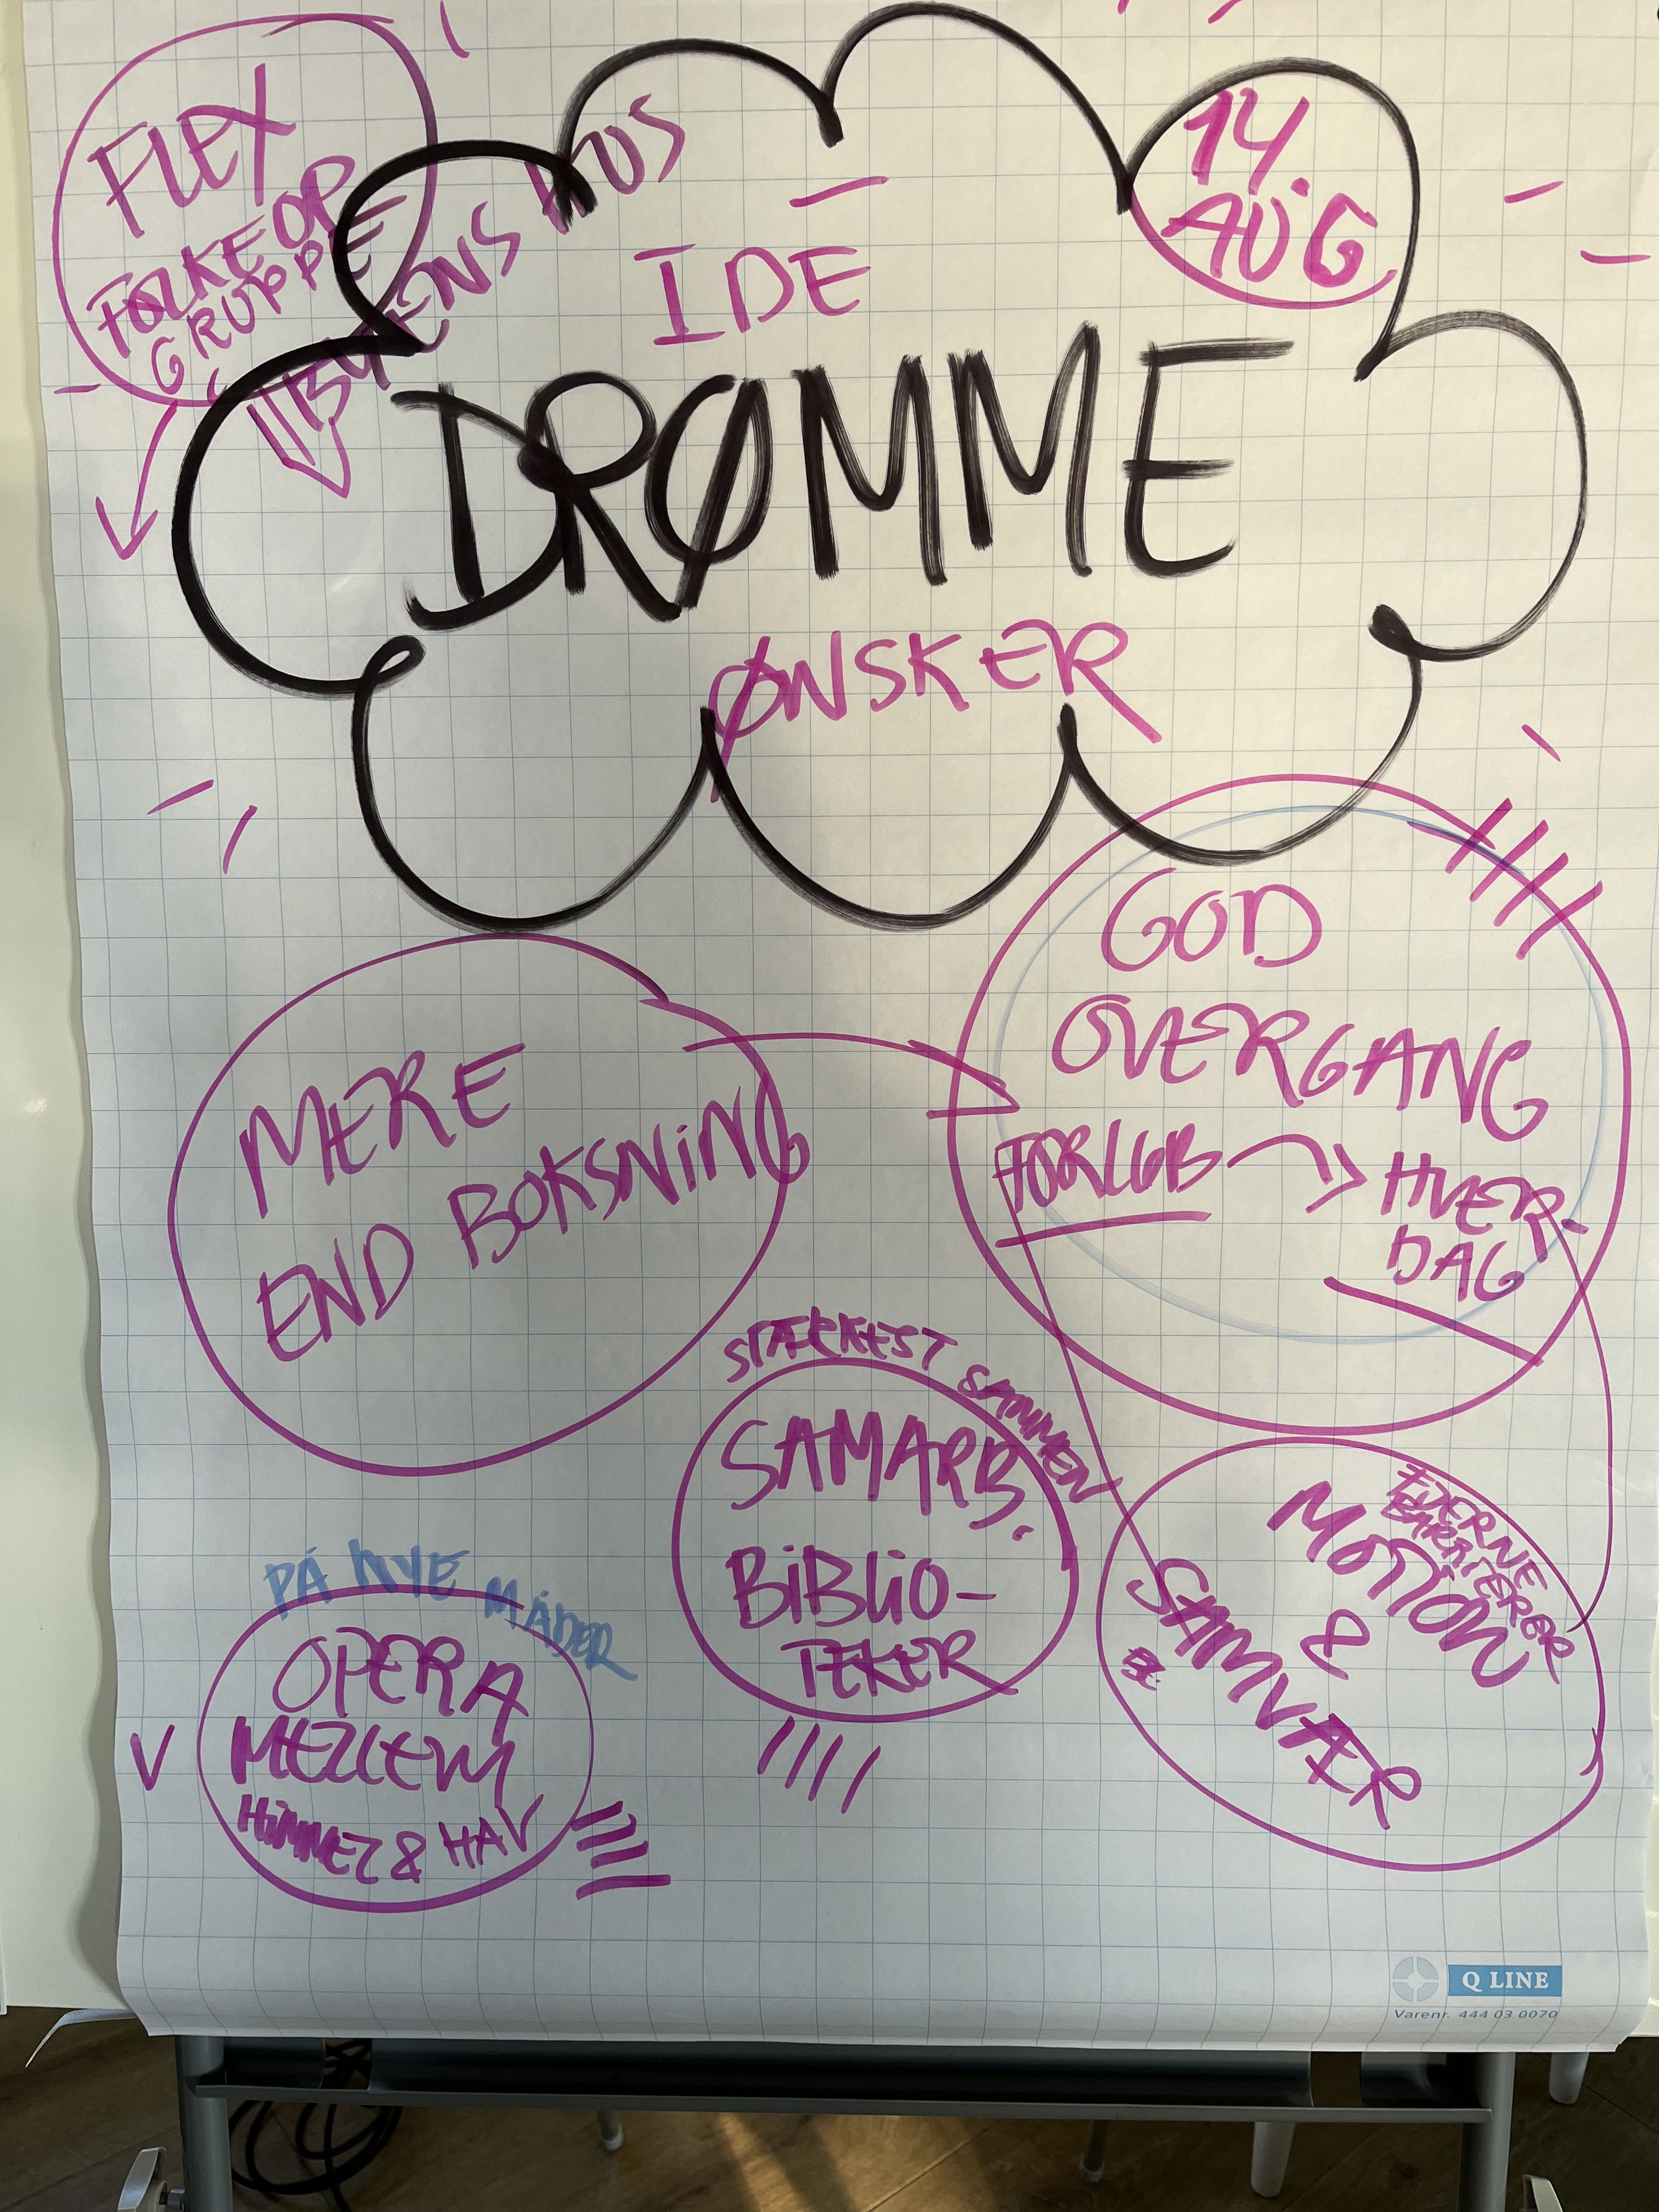 FLEX
FOLKEOP
GRUPPE
BYENS HUS
14.
AUG
IDE
DRØMME
ØNSKER
GOD
OVERGANG
FORLØB → HVER-
DAG
MERE
END BOKSNING
STÆRKEST SAMMEN
SAMARB.
BIBLIO-
TEKER
FJERNE
BARRIERER
MOTION
&
SAMVÆR
PÅ NYE MÅDER
OPERA
MELLEM
HIMMEL & HAV
V
Q LINE
Varenr. 444 03 0070